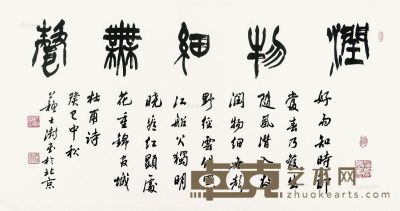 潤物細無聲
好雨知時節
當春乃發生
隨風潛入夜
潤物細無聲
野徑雲俱黑
江船火獨明
曉看紅濕處
花重錦官城
杜甫詩
癸巳中秋
蘇士澍書於北京
艺术网
www.zhuokearts.com